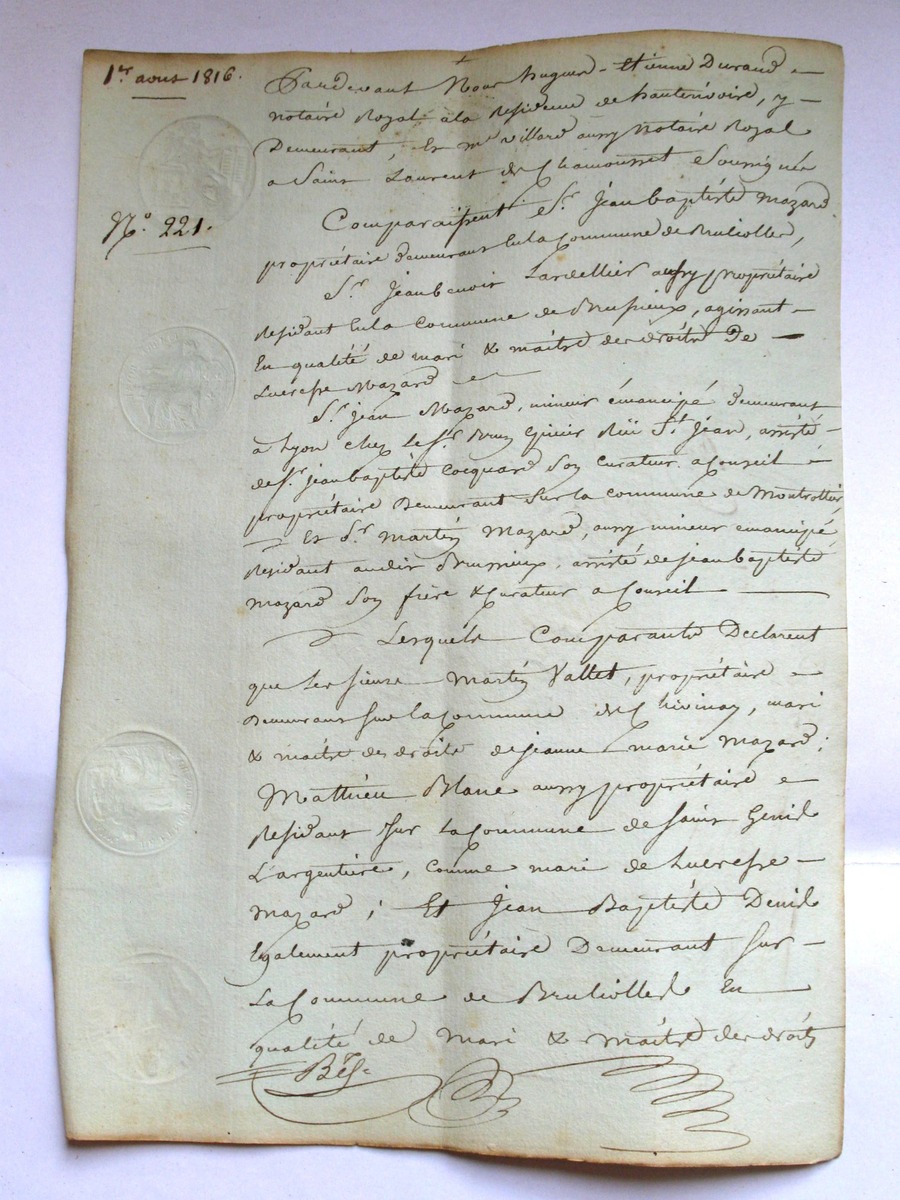 1er aout 1816.
Pardevant Nous hugues-Etienne Durand
notaire Royal à la Residence de hauterivoire, y
Demeurant, Et me villard aussy Notaire Royal
a Saint Laurent de Chamousset Soussignés
No. 221.
Comparaissent Sr. Jean baptiste Mazard
propriétaire demeurant En la Commune de Brulioles,
Sr. Jean benoit Lardellier aussy propriétaire
Residant En la Commune de Brussieux, agissant
En qualité de mari & maitre des droits De
Lucresse Mazard
Sr. Jean Mazard, mineur émancipé demeurant
a Lyon chez le Sr. Rüe St. Jean, assisté
de Sr. jean baptiste Cocquard Son Curateur a Conseil
propriétaire Demeurant Sur la Commune de Montrottier
Et Sr. Martin Mazard, aussy mineur émancipé
Residant audit Brussieux, assisté de jean baptiste
Mazard Son frère & Curateur a Conseil
Lesquels Comparants Déclarent
que les sieurs Martin Vallet, propriétaire
Demeurant sur la Commune de Chivinay, mari
& maitre des droits de jeanne marie Mazard;
Mathieu Blanc aussy propriétaire
Residant sur la Commune de Saint Genis
L'argentière, comme mari de Lucresse
Mazard; Et Jean Baptiste Denis
Egalement propriétaire Demeurant sur
La Commune de Brulioles En
qualité de Mari & Maitre des droits